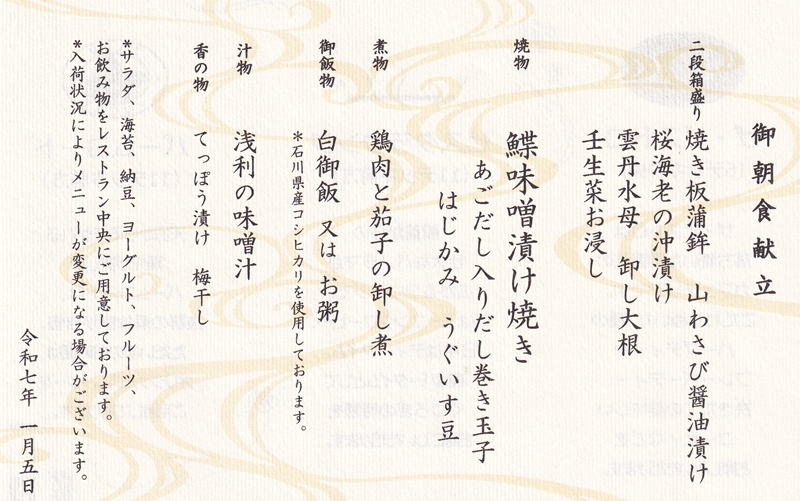 御朝食献立
二段箱盛り 焼き板蒲鉾 山わさび醤油漬け
桜海老の沖漬け
雲丹水母 卸し大根
壬生菜お浸し
焼物 鰈味噌漬け焼き
あごだし入りだし巻き玉子
はじかみ うぐいす豆
煮物 鶏肉と茄子の卸し煮
御飯物 白御飯 又は お粥
*石川県産コシヒカリを使用しております。
汁物 浅利の味噌汁
香の物 てっぽう漬け 梅干し
*サラダ、海苔、納豆、ヨーグルト、フルーツ、
お飲み物をレストラン中央にご用意しております。
*入荷状況によりメニューが変更になる場合がございます。
令和七年 一月五日